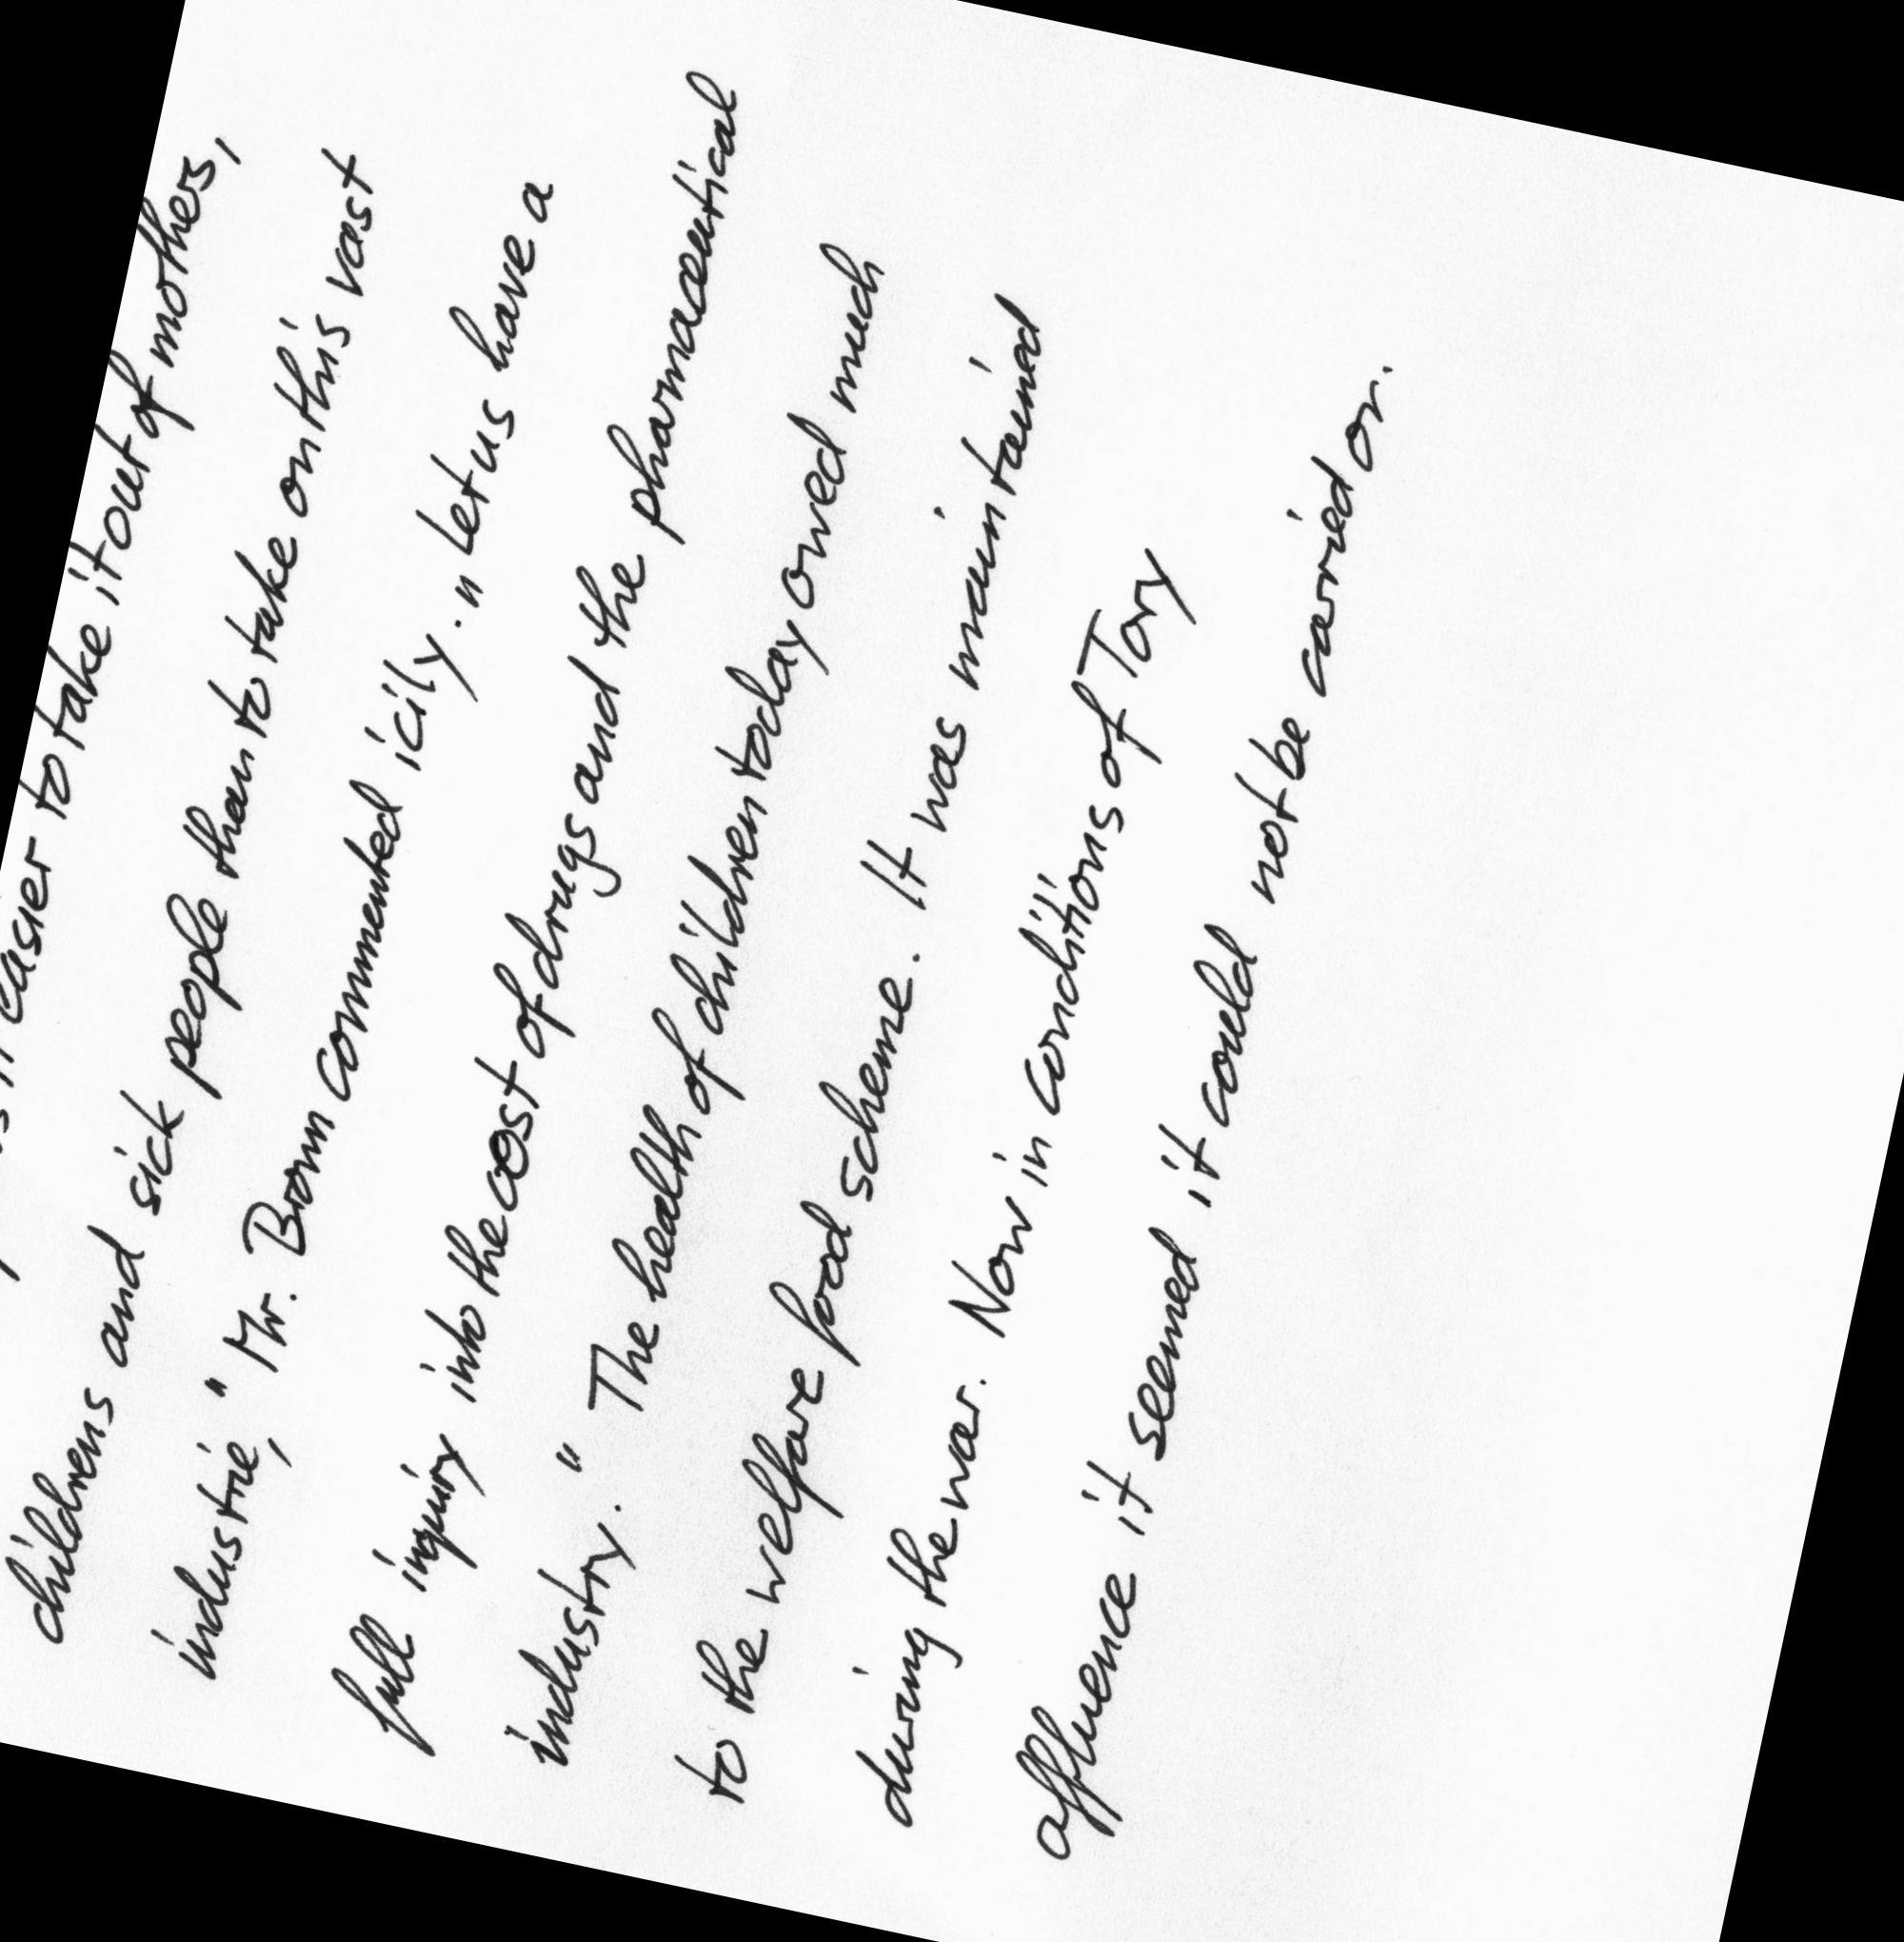 easier to take it out of mothers,
childrens and sick people than to take on this vast
industrie," Mr. Brown commented icily. "Let us have a
full inquiry into the cost of drugs and the pharmaceutical
industry." The health of children today owed much
to the welfare food scheme. It was maintained
during the war. Now in conditions of Tory
affluence it seemed it could not be carried on.